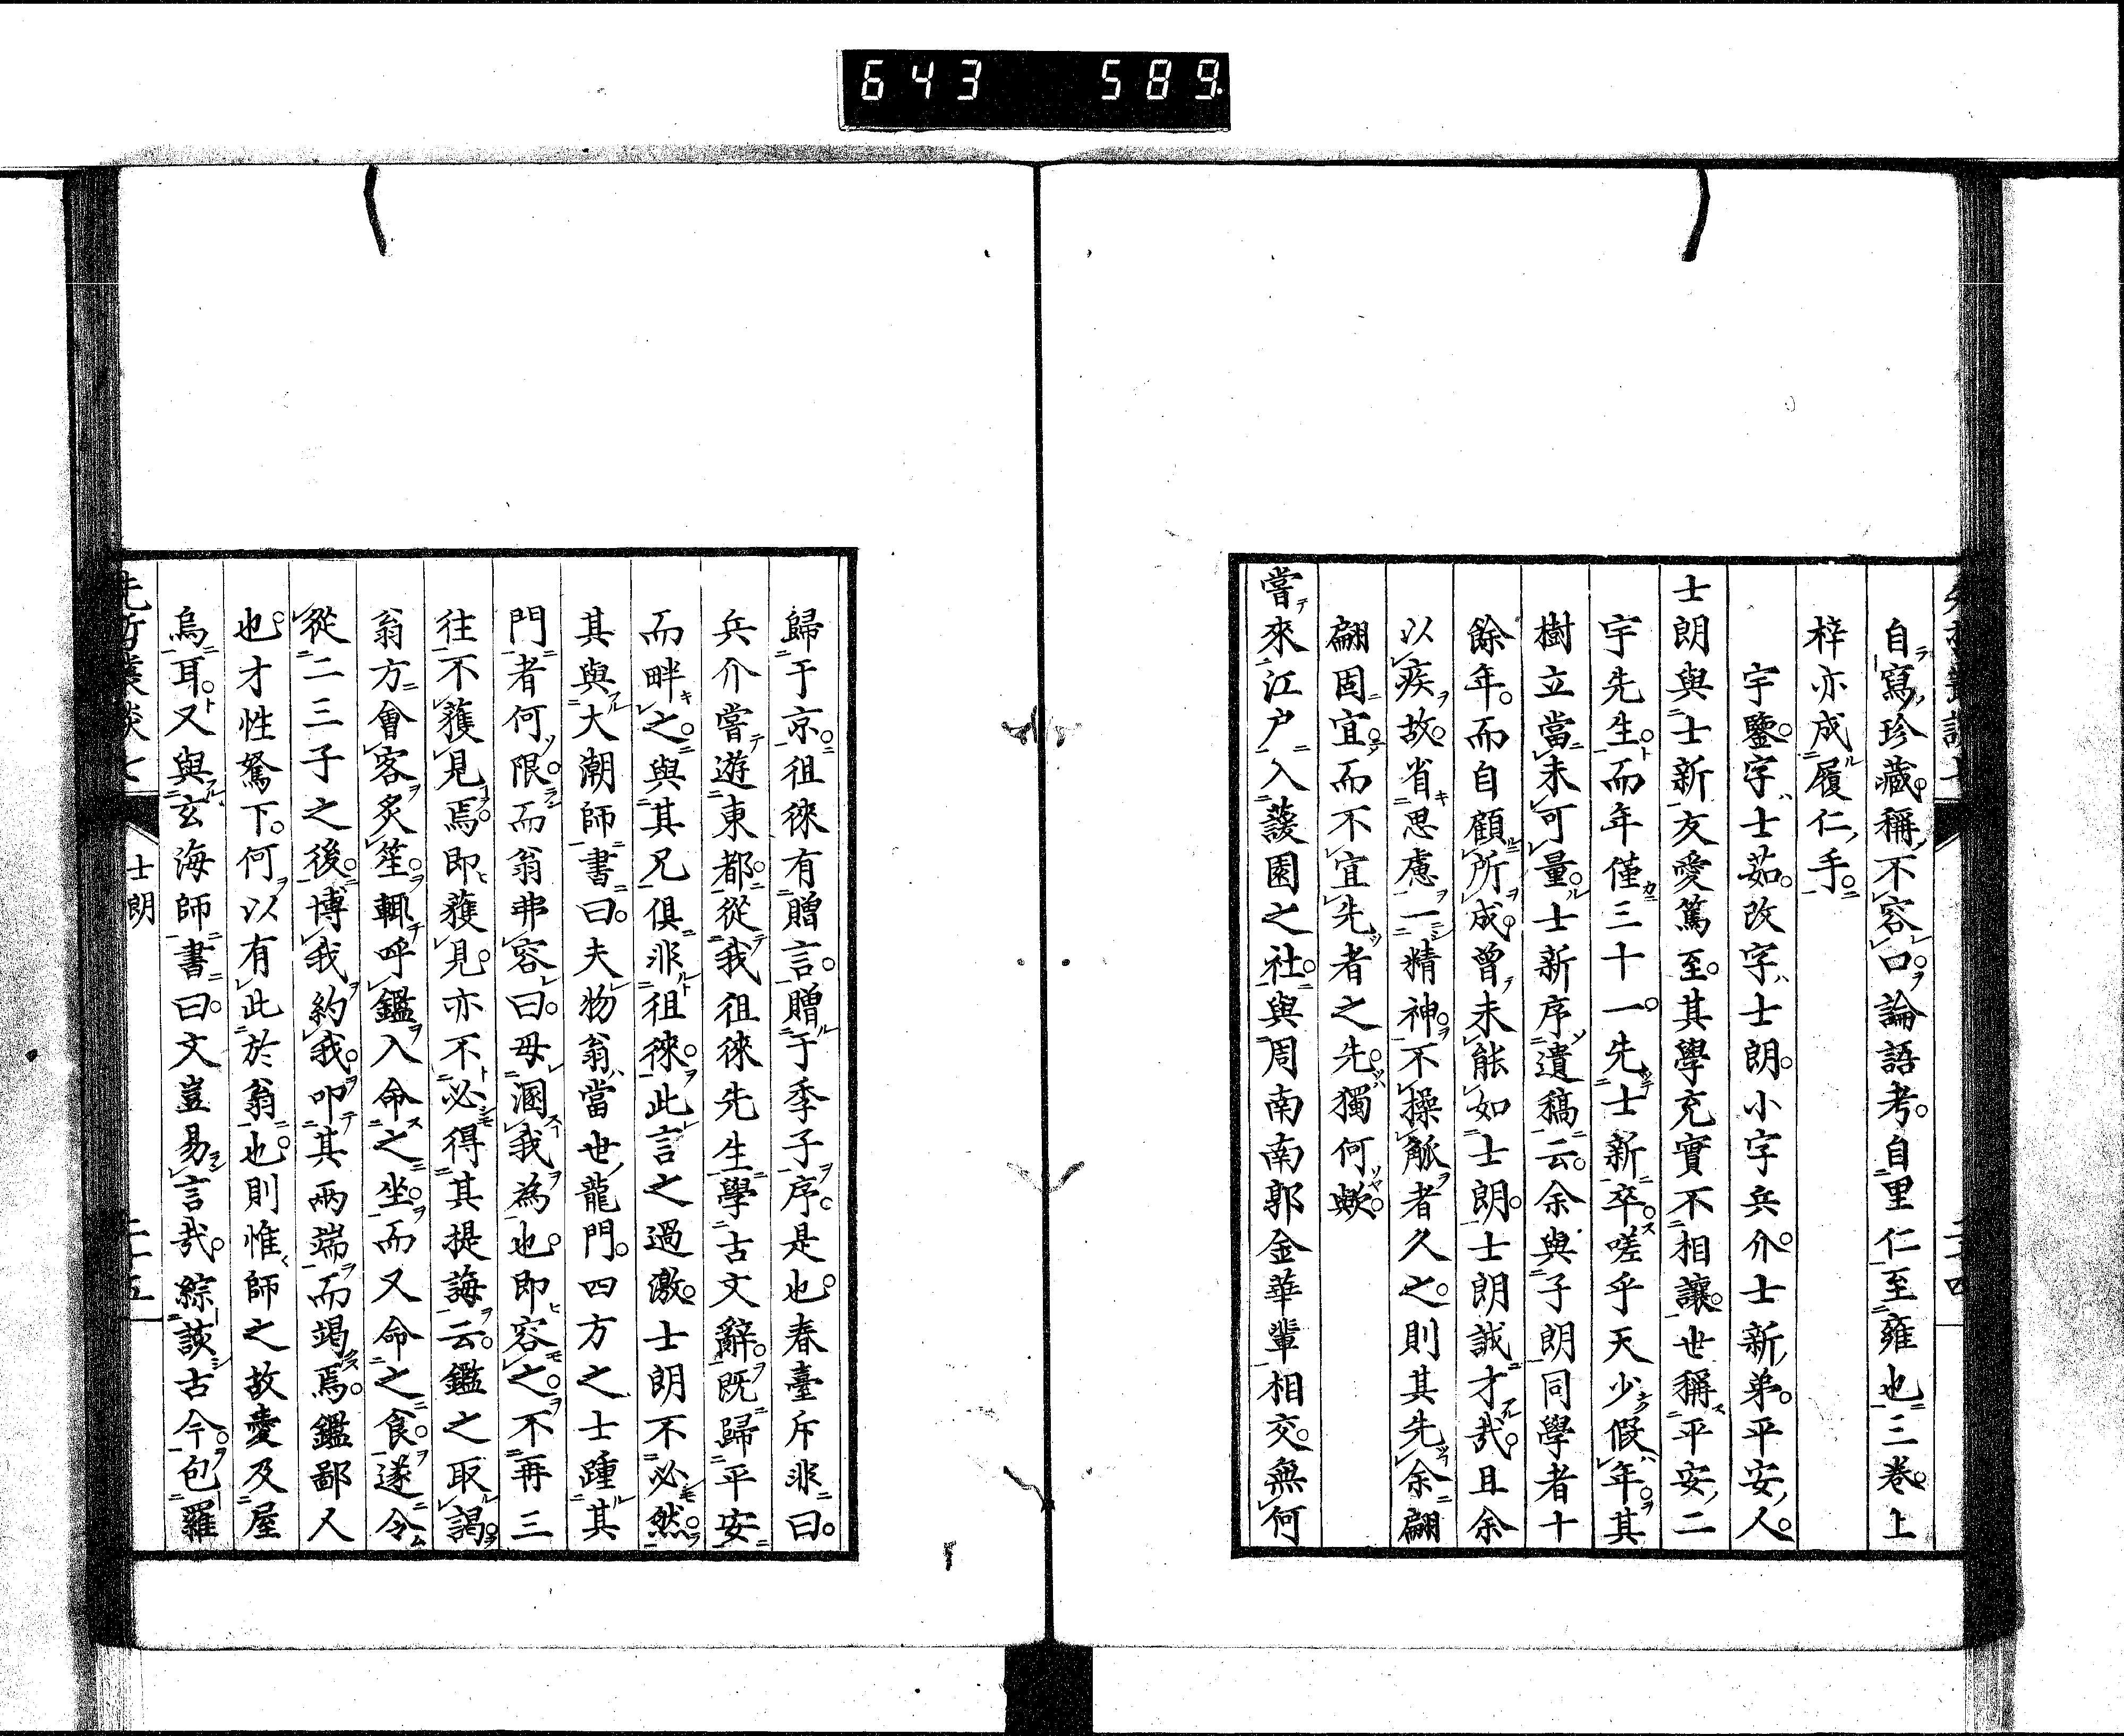 643 589
自寫珍藏。稱不容口。論語考。自里仁至雍也三卷。上
梓亦成履仁手。
宇鑒。字士茹。改字士朗。小字兵介。士新弟。平安人。
士朗與士新友愛篤至。其學充實不相讓。世稱平安二
宇先生。而年僅三十一。先士新卒。嗟乎天少假年。其
樹立當未可量。士新序遺稿云。余與子朗同學者十
餘年。而自顧所成。曾未能如士朗。士朗誠才哉。且余
以疾故。省思慮一精神。不操觚者久之。則其先余翩
翩固宜。而不宜先者之先。獨何歟。
嘗來江戸入蘐園之社。與周南南郭金華輩相交。無何
歸于京。徂徠有贈言。贈于季子序是也。春臺斥非曰。
兵介嘗遊東都。從我徂徠先生學古文辭。既歸平安
而畔之。與其兄俱非徂徠。此言之過激。士朗不必然。
其與大潮師書曰。夫物翁當世龍門。四方之士踵其
門者何限。而翁弗容。曰毋溷我為也。即容之。不再三
往不獲見焉。即獲見。亦不必得其提誨云。鑑之取謁。
翁方會客炙笙。輒呼鑑入命之坐。而又命之食。遂令
從二三子之後。博我約我。叩其兩端而竭焉。鑑鄙人
也。才性駑下。何以有此於翁也。則惟師之故愛及屋
烏耳。又與玄海師書曰。文豈易言哉。綜該古今。包羅
士朗